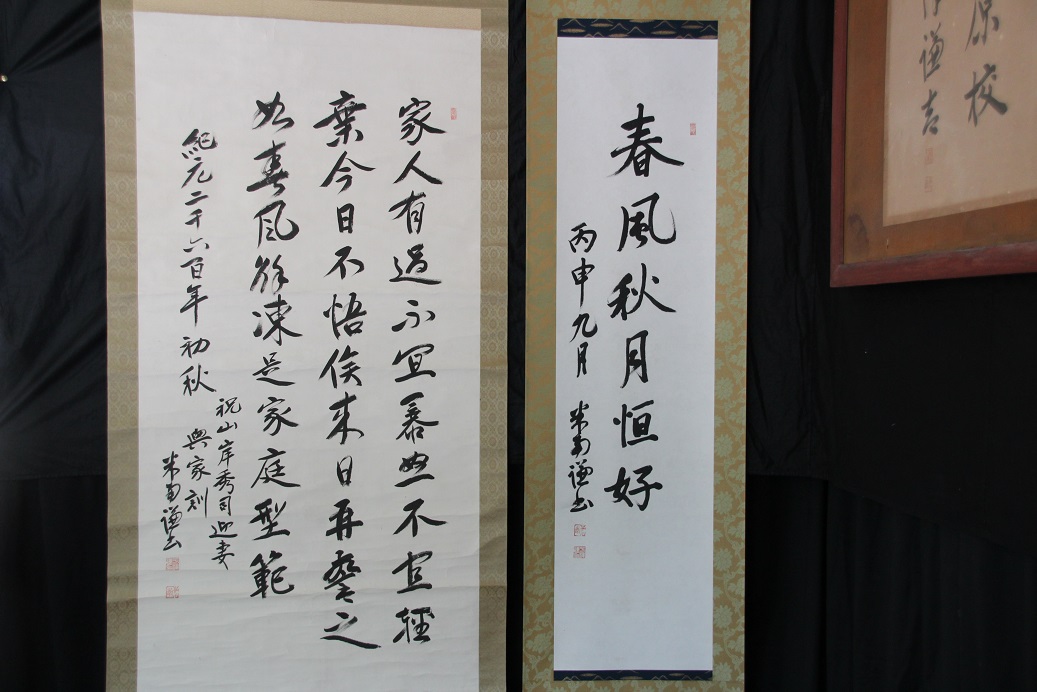 原校
謙吉
春風秋月恒好
丙申九月 米南謙書
家人有過不宜暴怒不宜輕
棄今日不悟俟来日再警之
如春風解凍是家庭型範
紀元二千六百年初秋
祝山岸秀司迎妻
與家刻
米南謙書